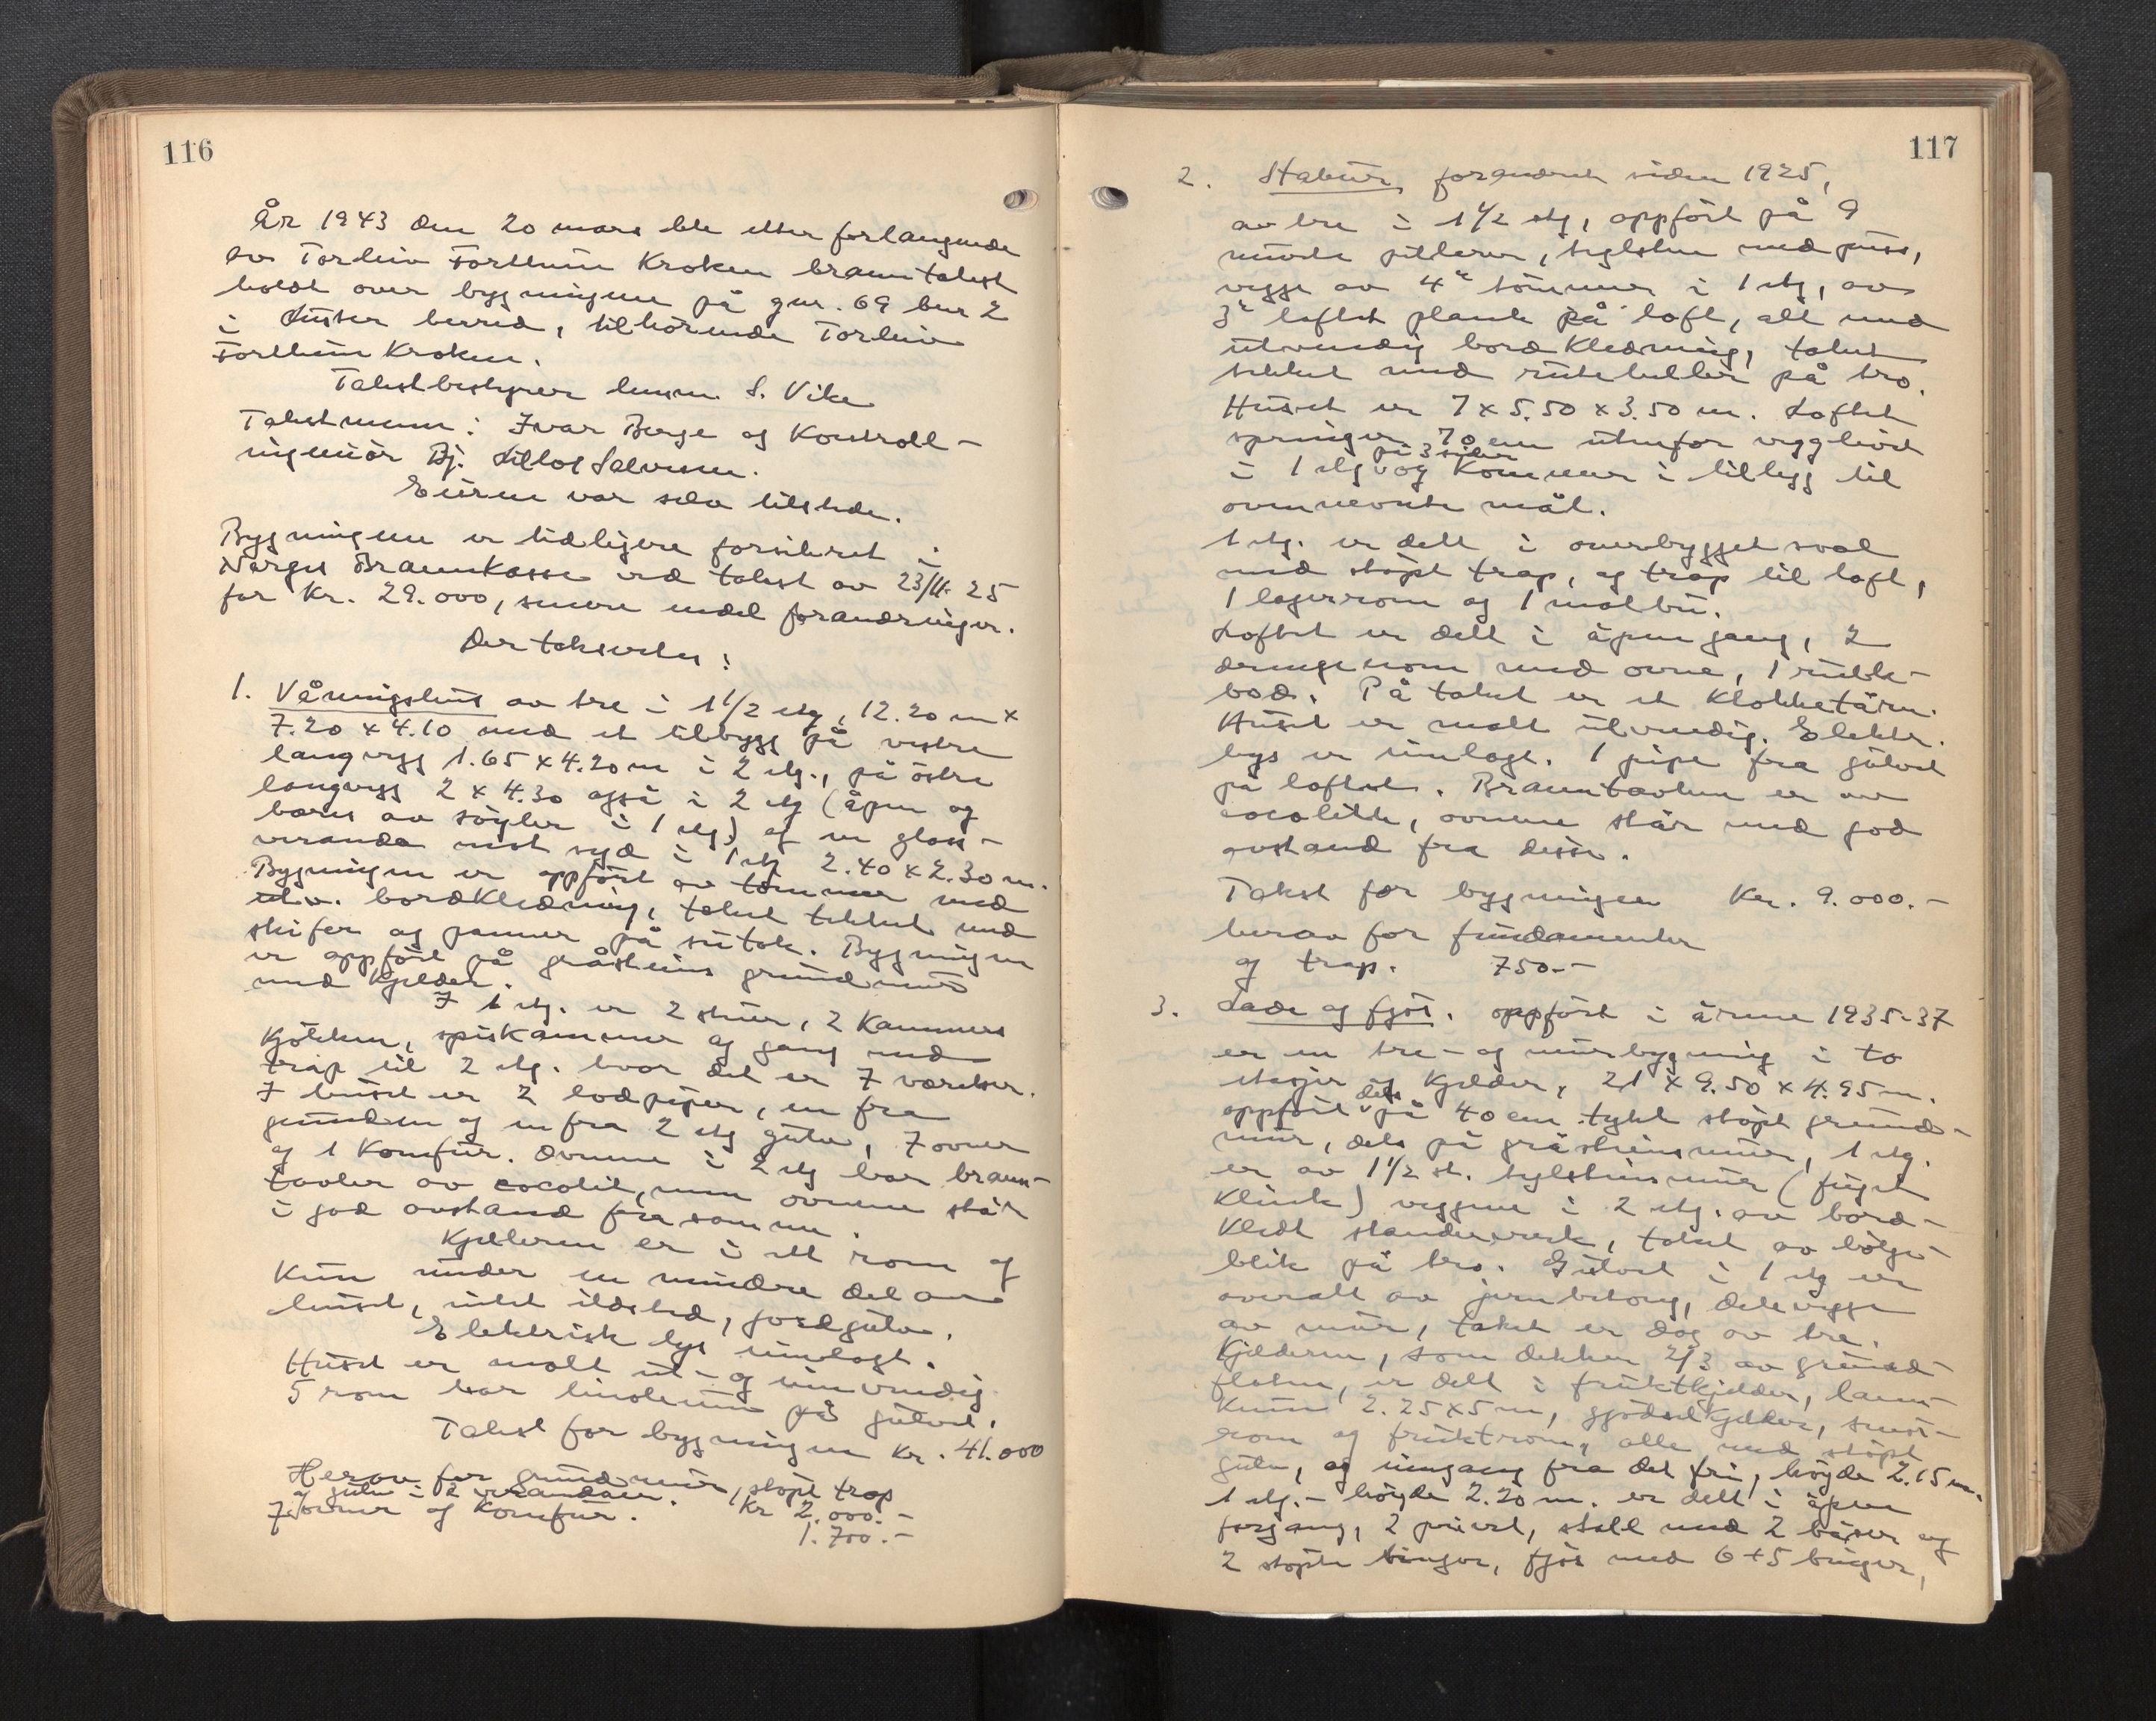 116
År 1943 den 20 mars ble etter forlangende
av Torleiv Fortheim Kroken branntakst
holdt over bygningene på gnr. 69 bnr 2
i Luster herred, tilhörende Torleiv
Fortheim Kroken.
Takstbestyrer lensm. S. Vike
Takstmenn: Ivar Berge og Kontroll-
ingeniör Bj.
Eieren var selv tilstede.
Bygningene er tidligere forsikret i
Norges Brannkasse ved takst av 23/4-25
for Kr. 29.000, senere endel forandringer.
Der takseredes:
1. Våningshus av tre i 1 1/2 etg, 12.20 m x
7.20 x 4.10 med et tilbygg på vestre
langvegg 1.65 x 4.20 m i 2 etg., på östre
langvegg 2 x 4.30 også i 2 etg (åpen og
bæres av söyler i 1 etg.) og en glass-
veranda mot syd i 1 etg 2.40 x 2.30 m.
Bygningen er oppfört av tömmer med
utv. bordkledning, taket tekket med
skifer og panner på sutak. Bygningen
er oppfört på gråsteins grundmur
med Kjelder.
I 1 etg. er 2 stuer, 2 Kammers
Kjökken, spiskammer og gang med
trap til 2 etg. hvor det er 7 værelser.
I huset er 2 lodpiper, en fra
grunden og en fra 2 etg gulv, 7 ovner
og 1 Komfur. Ovnene i 2 etg har brann-
tavler av cocolit, men ovnene står
i god avstand fra samme.
Kjelleren er i ett rom og
Kun under en mindre del av
huset, intet ildsted, jordgulv.
Elektrisk lys innlagt.
Huset er malt ut- og innvendig
5 rom har linoleum på gulvet.
Takst for bygningen Kr. 41.000
Herav for grundmur, stöpt trap
og gulv i 2 verandaer. Kr 2.000.-
7 ovner og Komfur. 1.700.-
117
2. Stabur, forandret siden 1925,
av tre i 1 1/2 etg, oppfört på 9
murte pillarer, teglsten med puss,
vegge av 4" tömmer i 1 etg, av
3" laftet plank på loft, alt med
utvendig bordkledning, taket
tekket med ruteheller på tro.
Huset er 7 x 5.50 x 3.50 m. Loftet
springer 70 cm utenfor vegglivet
på 3 sider
i 1 etg og Kommer i tillegg til
ovennevnte mål.
1 etg. er delt i overbygget sval
med stöpt trap, og trap til loft,
1 lagerrom og 1 matbu.
Loftet er delt i åpen gang, 2
drengerom med ovne, 1 rulle-
bod. På taket er et Klokketårn.
Huset er malt utvendig. Elektr.
lys er innlagt. 1 pipe fra gulvet
på loftet. Branntavlene er av
cocolitt, ovnene står med god
avstand fra disse.
Takst for bygningen Kr. 9.000.-
herav for fundamenter
og trap. 750.-
3. Lade og fjös. oppfört i årene 1935-37
er en tre- og murbygning i to
etasjer og Kjelder, 21 x 9.50 x 4.95 m.
dels
oppfört på 40 cm. tykk stöpt grund-
mur, dels på gråsteinsmur, 1 etg.
er av 1 1/2 st. teglsteinsmur (fuget
Klink) veggene i 2 etg. av bord-
Kledt stenderverk, taket av bölge-
blik på tro. Gulvet i 1 etg er
overalt av jernbetong, delevegge
av mur, taket er dog av tre.
Kjelderen, som dekker 2/3 av grund-
flaten, er delt i fruktkjelder, land-
Kum 2.25x5 m, gjödselkjelder,
rom og fruktrom, alle med stöpt
gulv, og inngang fra det fri, höyde 2.15 m.
1 etg.- höyde 2.20 m. er delt i åpen
forgang, 2 privet, stall med 2 båser og
2 stöpte binger, fjös med 6+5 binger,